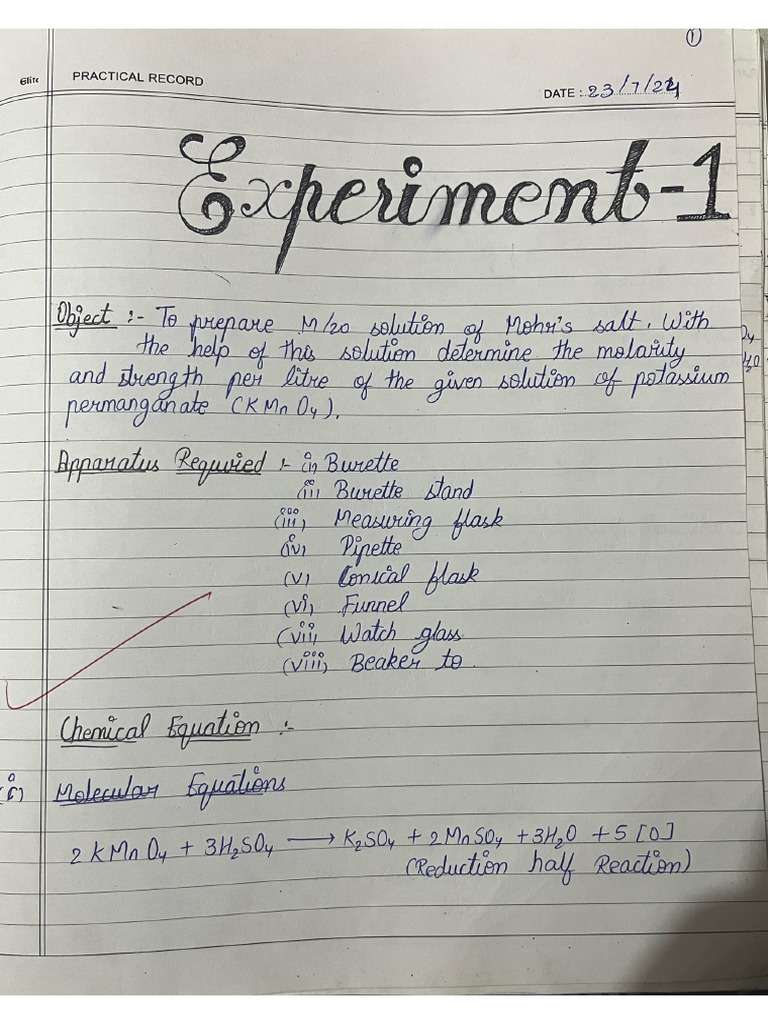 ①
Elite PRACTICAL RECORD
DATE : 23/7/24
Experiment-1
Object :- To prepare M/20 solution of Mohr's salt. With
the help of this solution determine the molarity
and strength per litre of the given solution of potassium
permanganate (KMnO₄).
Apparatus Requvied :- (i) Burette
(ii) Burette stand
(iii) Measuring flask
(iv) Pipette
(v) Conical flask
(vi) Funnel
(vii) Watch glass
(viii) Beaker to
Chemical Equation :-
(i) Molecular Equations
2 KMnO₄ + 3H₂SO₄ ⟶ K₂SO₄ + 2MnSO₄ + 3H₂O + 5 [O]
(Reduction half Reaction)